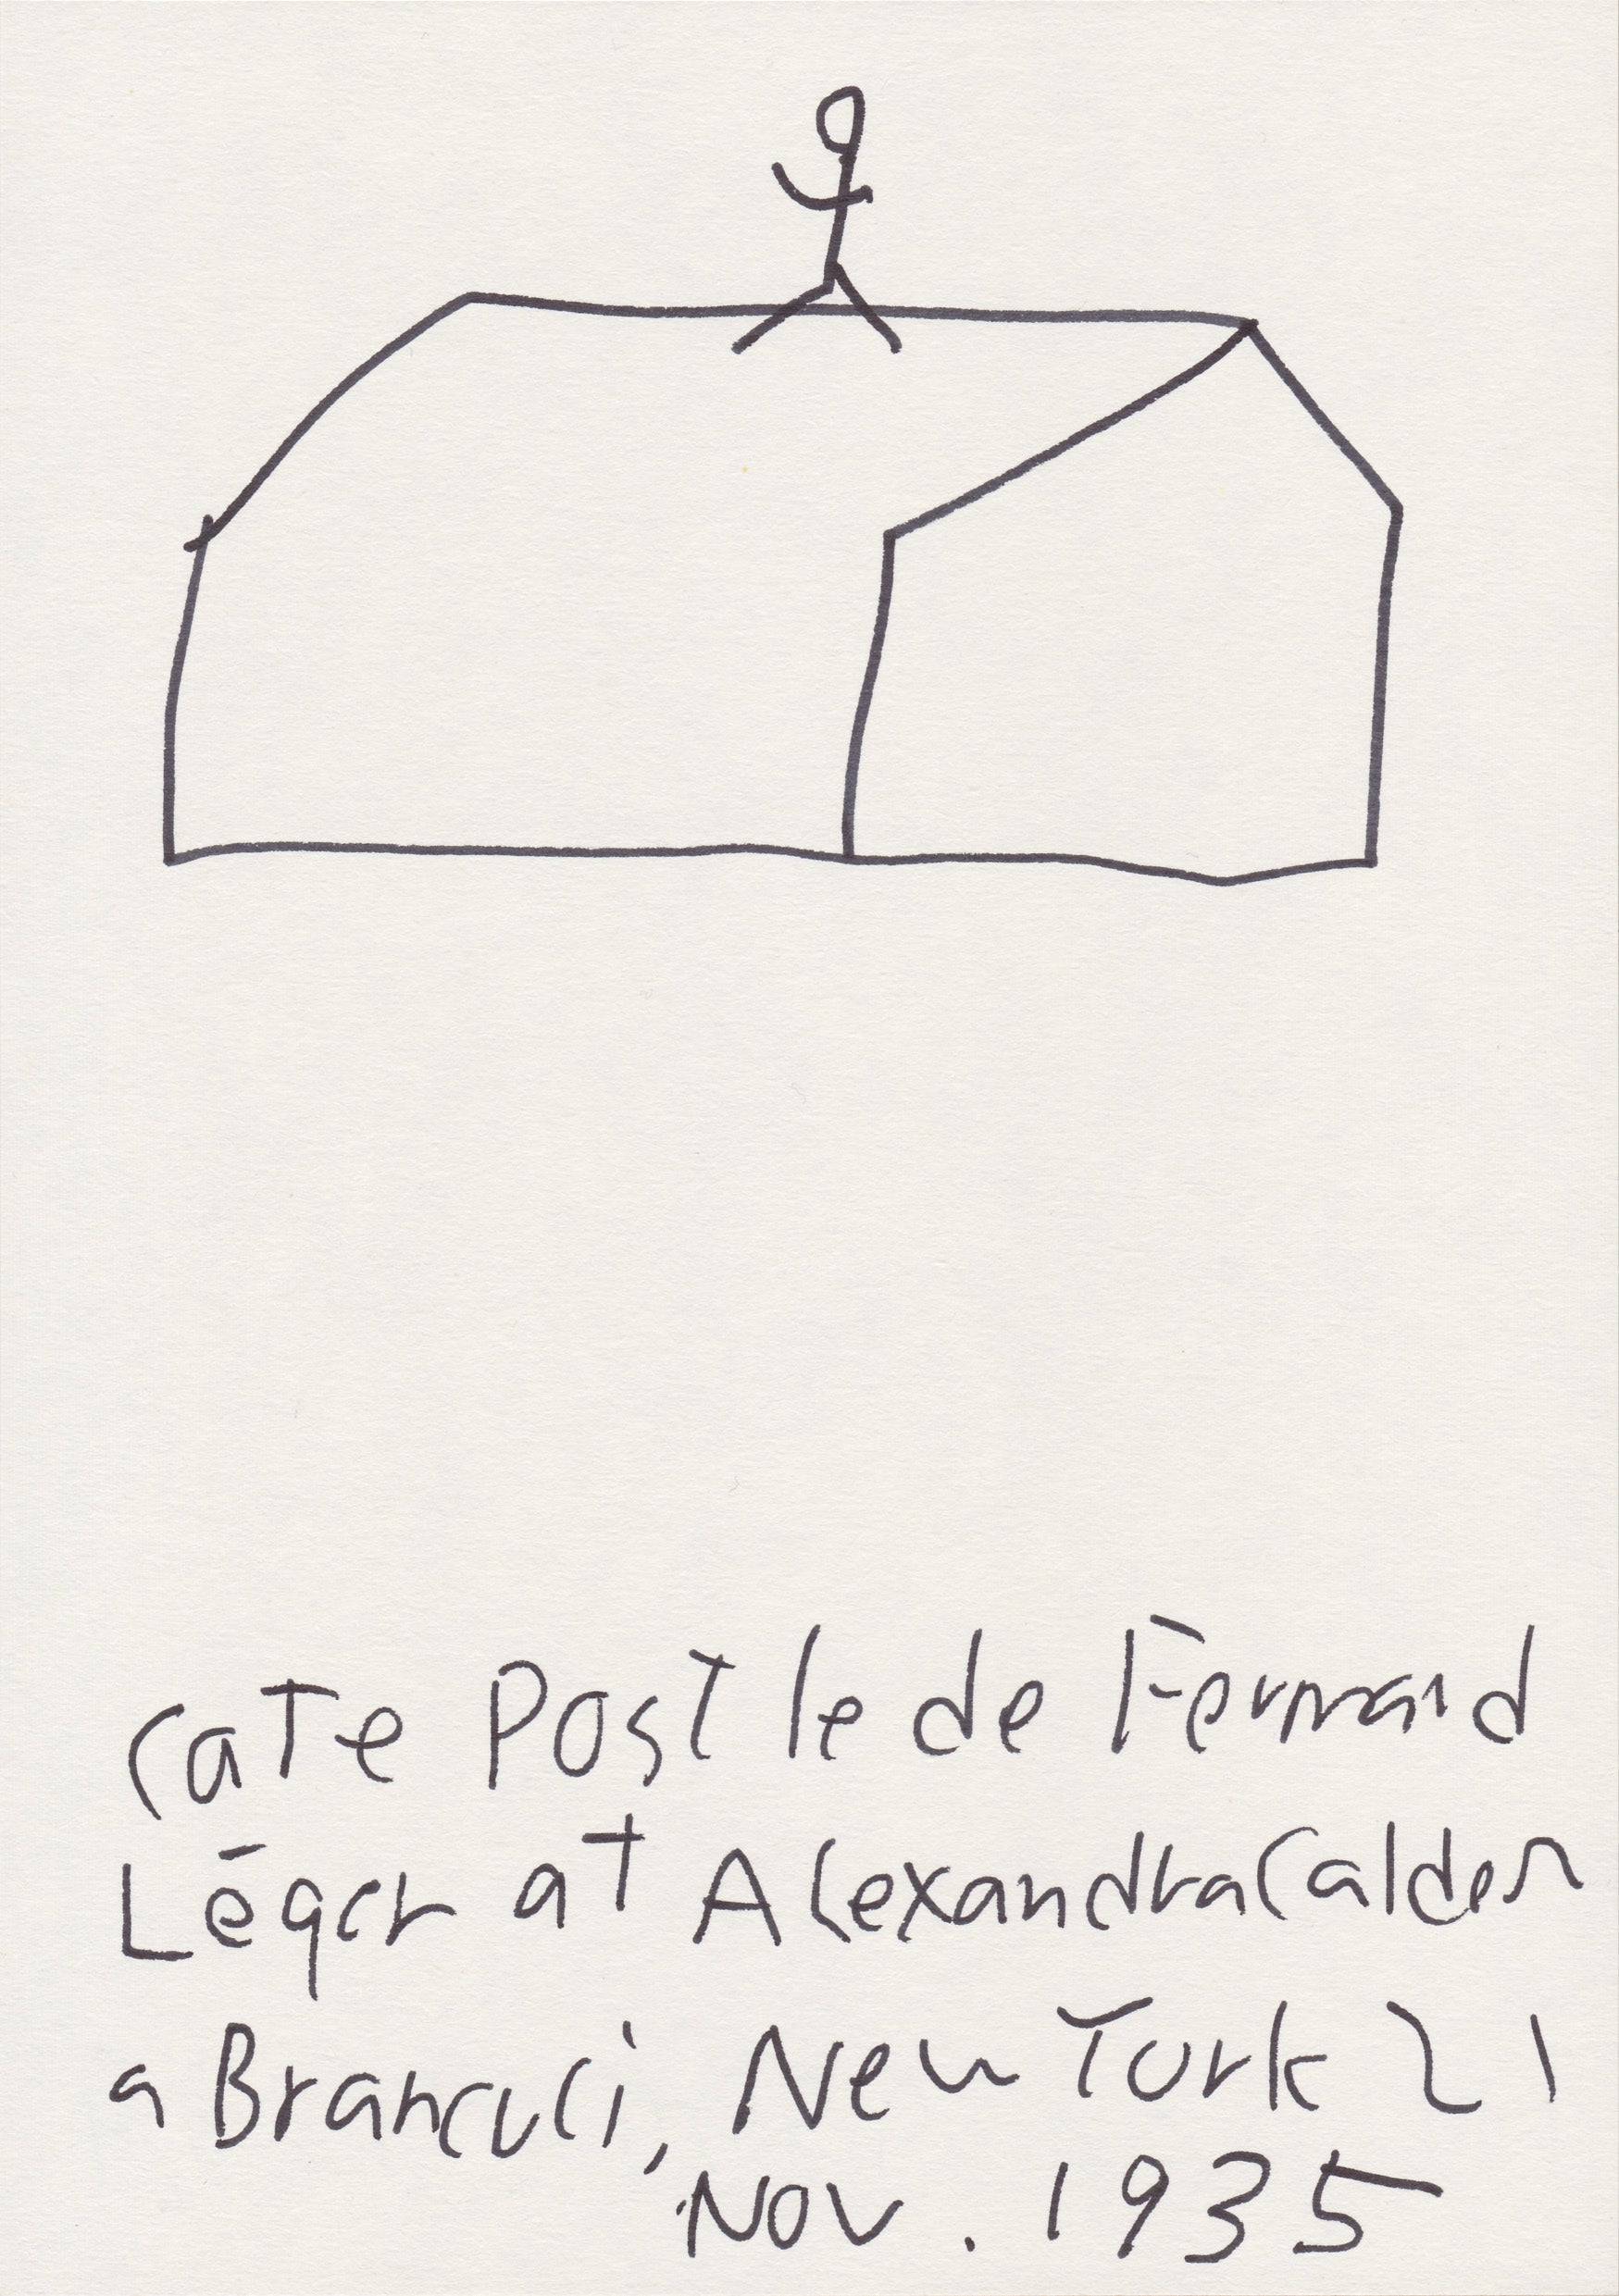 cate Post le de Fernand
Léger at Alexandra Calder
a Brancuci, New York 21
Nov. 1935